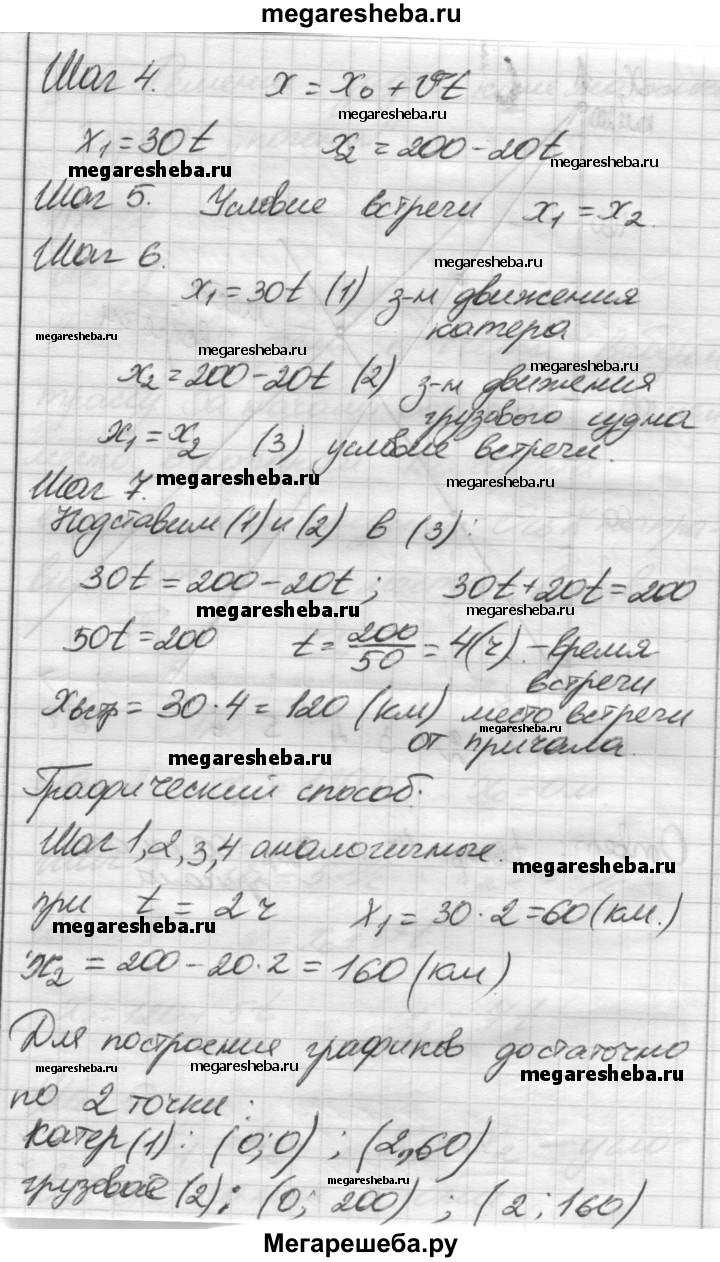 megaresheba.ru
Шаг 4. x = x₀ + vt
megaresheba.ru
x₁ = 30t x₂ = 200 - 20t
megaresheba.ru
megaresheba.ru
Шаг 5. Условие встречи x₁ = x₂.
Шаг 6.
megaresheba.ru
x₁ = 30t (1) з-н движения
катера
megaresheba.ru
megaresheba.ru
megaresheba.ru
x₂ = 200 - 20t (2) з-н движения
грузового судна
x₁ = x₂ (3) условие встречи.
megaresheba.ru
megaresheba.ru
Шаг 7.
Подставим (1) и (2) в (3):
30t = 200 - 20t; 30t + 20t = 200
megaresheba.ru
megaresheba.ru
50t = 200 t = 200/50 = 4(ч). - время
встречи
xвстр = 30·4 = 120 (км) место встречи
от причала.
megaresheba.ru
Графический способ:
Шаг 1, 2, 3, 4 аналогичные.
megaresheba.ru
при t = 2 ч x₁ = 30·2 = 60 (км.)
megaresheba.ru
x₂ = 200 - 20·2 = 160 (км)
Для построения графиков достаточно
megaresheba.ru
megaresheba.ru
megaresheba.ru
по 2 точки:
катер (1): (0; 0); (2, 60)
megaresheba.ru
грузовое (2): (0; 200); (2; 160)
Мегарешеба.ру